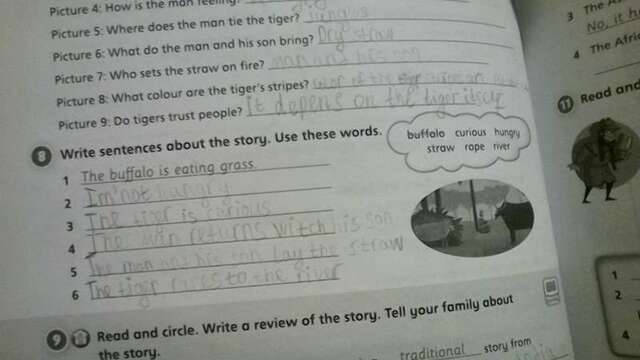 Picture 4: How is the man feeling?
Picture 5: Where does the man tie the tiger?
Picture 6: What do the man and his son bring? Dry straw
Picture 7: Who sets the straw on fire? man and his son
Picture 8: What colour are the tiger's stripes?
Picture 9: Do tigers trust people? It depens on the tiger itself
8 Write sentences about the story. Use these words.
buffalo curious hungry
straw rope river
1 The buffalo is eating grass.
2 I'm not hungry
3 The tiger is curious
4 The man returns witch his son
5 The man and his son lay the straw
6 The tiger races to the river
9 Read and circle. Write a review of the story. Tell your family about
the story.
traditional story from
3 The
No, it h
4 The Afri
11 Read and
1
2
4